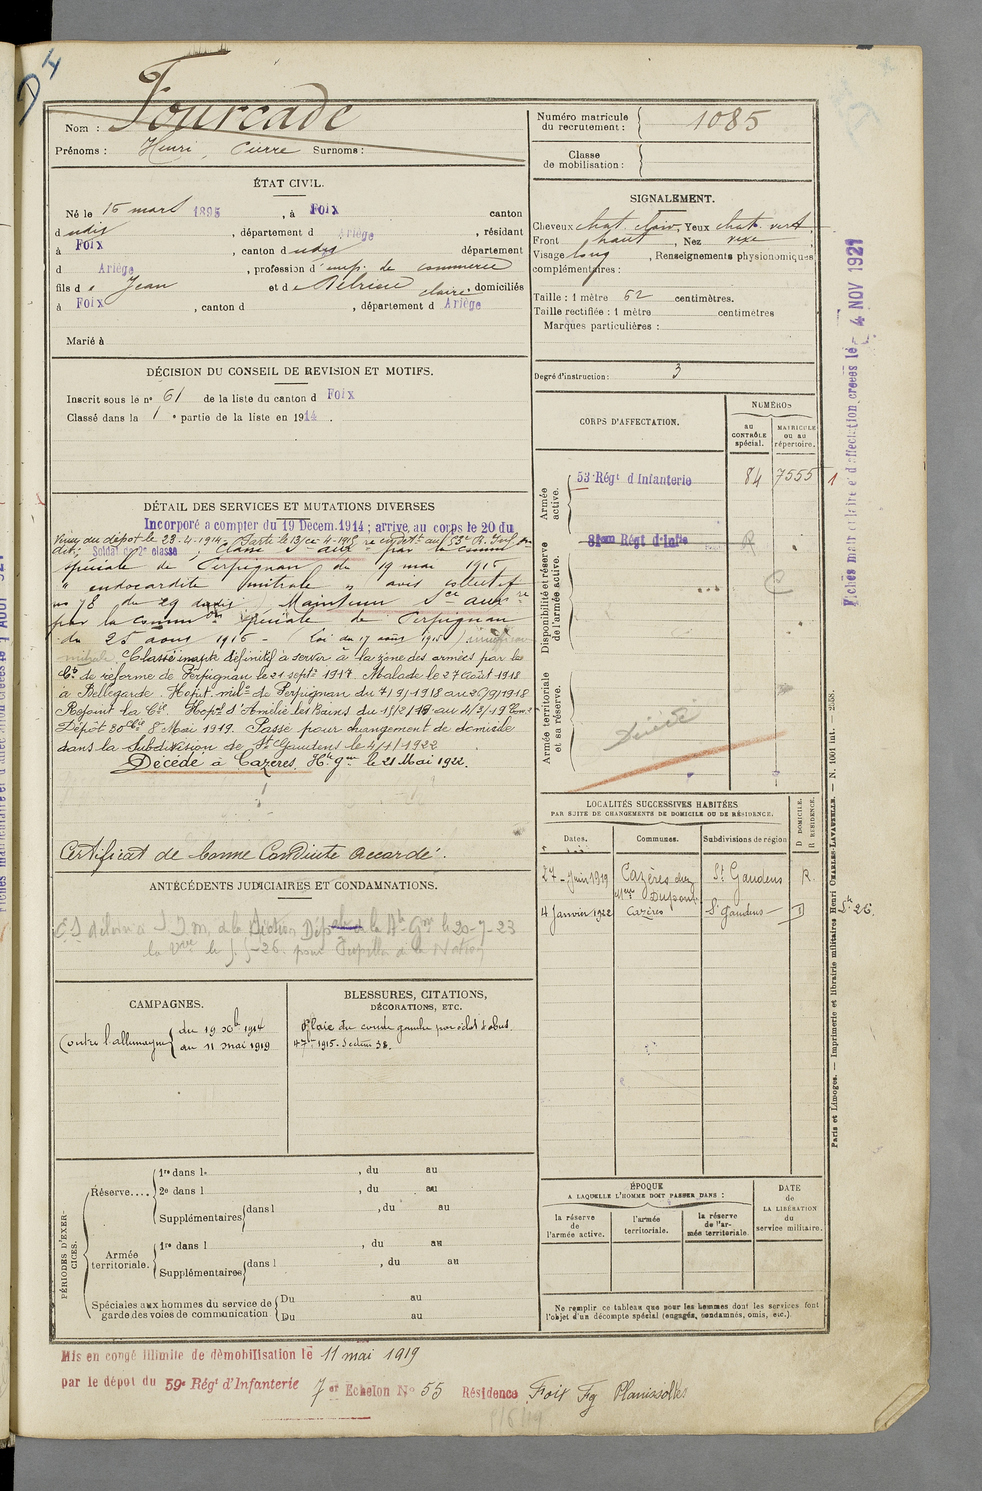 Fourcade
Nom :
Prénoms : Henri, Pierre Surnoms :
Numéro matricule
du recrutement : 1085
Classe
de mobilisation :
ÉTAT CIVIL.
Né le 15 mars 1895, à Foix canton
dudit, département d Ariège, résidant
à Foix, canton dudit département
d Ariège, profession d'emp. de commerce
fils de Jean et de Claire domiciliés
à Foix, canton d , département d Ariège
Marié à
SIGNALEMENT.
Cheveux chat. clair, Yeux chat. vert,
Front haut, Nez vexe
Visage long, Renseignements physionomiques
complémentaires :
Taille : 1 mètre 62 centimètres.
Taille rectifiée : 1 mètre centimètres
Marques particulières :
Degré d'instruction : 3
DÉCISION DU CONSEIL DE REVISION ET MOTIFS.
Inscrit sous le nº 61 de la liste du canton d Foix
Classé dans la 1e partie de la liste en 1914.
DÉTAIL DES SERVICES ET MUTATIONS DIVERSES
Incorporé à compter du 19 Décem. 1914 ; arrivé au corps le 20 du
dit; Soldat de 2e classe ; Classé Sce aux. par la comm
spéciale de Perpignan du 19 mai 1915
" endocardite mitrale " avis collectif
no 78 du 29 dudit. Maintenu Sce auxre
par la common spéciale de Perpignan
du 25 aout 1915 - (Loi du 17 août 1915)
mitrale. Classé inapte définitif à servir à la zone des armées par la
Con de réforme de Perpignan le 21 septe 1917. Malade le 27 Août 1918
à Bellegarde. Hopit. mil. de Perpignan du 7/9/1918 au 20/9/1918
Rejoint la Cie. Hopal d'Amélie les Bains du 15/2/19 au 4/3/19
Dépôt 30 8 Mai 1919. Passé pour changement de domicile
dans la Subdivision de St Gaudens le 4/1/1922
Décédé à Cazères, Hte Gne le 21 Mai 1922.
Certificat de bonne Conduite Accordé.
CORPS D'AFFECTATION.
NUMÉROS
au
CONTRÔLE
spécial.
MATRICULE
ou au
répertoire.
Armée
active.
53e Régt d'Infanterie 84 7555
Disponibilité et réserve
de l'armée active.
81em Régt d'Infie R
Armée territoriale
et sa réserve.
Décédé
LOCALITÉS SUCCESSIVES HABITÉES
PAR SUITE DE CHANGEMENTS DE DOMICILE OU DE RÉSIDENCE.
Dates. Communes. Subdivisions de région D DOMICILE. R RÉSIDENCE.
27 Juin 1919 Cazères chez Mme Dupont St Gaudens R.
4 Janvier 1922 Cazères St Gaudens D
ANTÉCÉDENTS JUDICIAIRES ET CONDAMNATIONS.
CAMPAGNES.
Contre l'allemagne du 19 Xbre 1914
au 11 mai 1919
BLESSURES, CITATIONS,
DÉCORATIONS, ETC.
Plaie du coude gauche par éclat d'obus
1915. Secteur 38.
PÉRIODES D'EXERCICES.
Réserve....
1re dans l , du au
2e dans l , du au
Supplémentaires dans l , du au
Armée
territoriale.
1re dans l , du au
Supplémentaires dans l , du au
Spéciales aux hommes du service de
garde des voies de communication
Du au
Du au
ÉPOQUE
A LAQUELLE L'HOMME DOIT PASSER DANS :
la réserve
de
l'armée active.
l'armée
territoriale.
la réserve
de l'armée territoriale.
DATE
de
LA LIBÉRATION
du
service militaire.
Ne remplir ce tableau que pour les hommes dont les services font
l'objet d'un décompte spécial (engagés, condamnés, omis, etc.).
Mis en congé illimité de démobilisation le 11 mai 1919
par le dépôt du 59e Régt d'Infanterie 7er Echelon No 55 Résidence Foix Fg Planissolles
Fiches matriculaire et d'affectation créées le 4 NOV 1921
Paris et Limoges. — Imprimerie et librairie militaires Henri CHARLES-LAVAUZELLE. — N. 1001 int. — 2558.